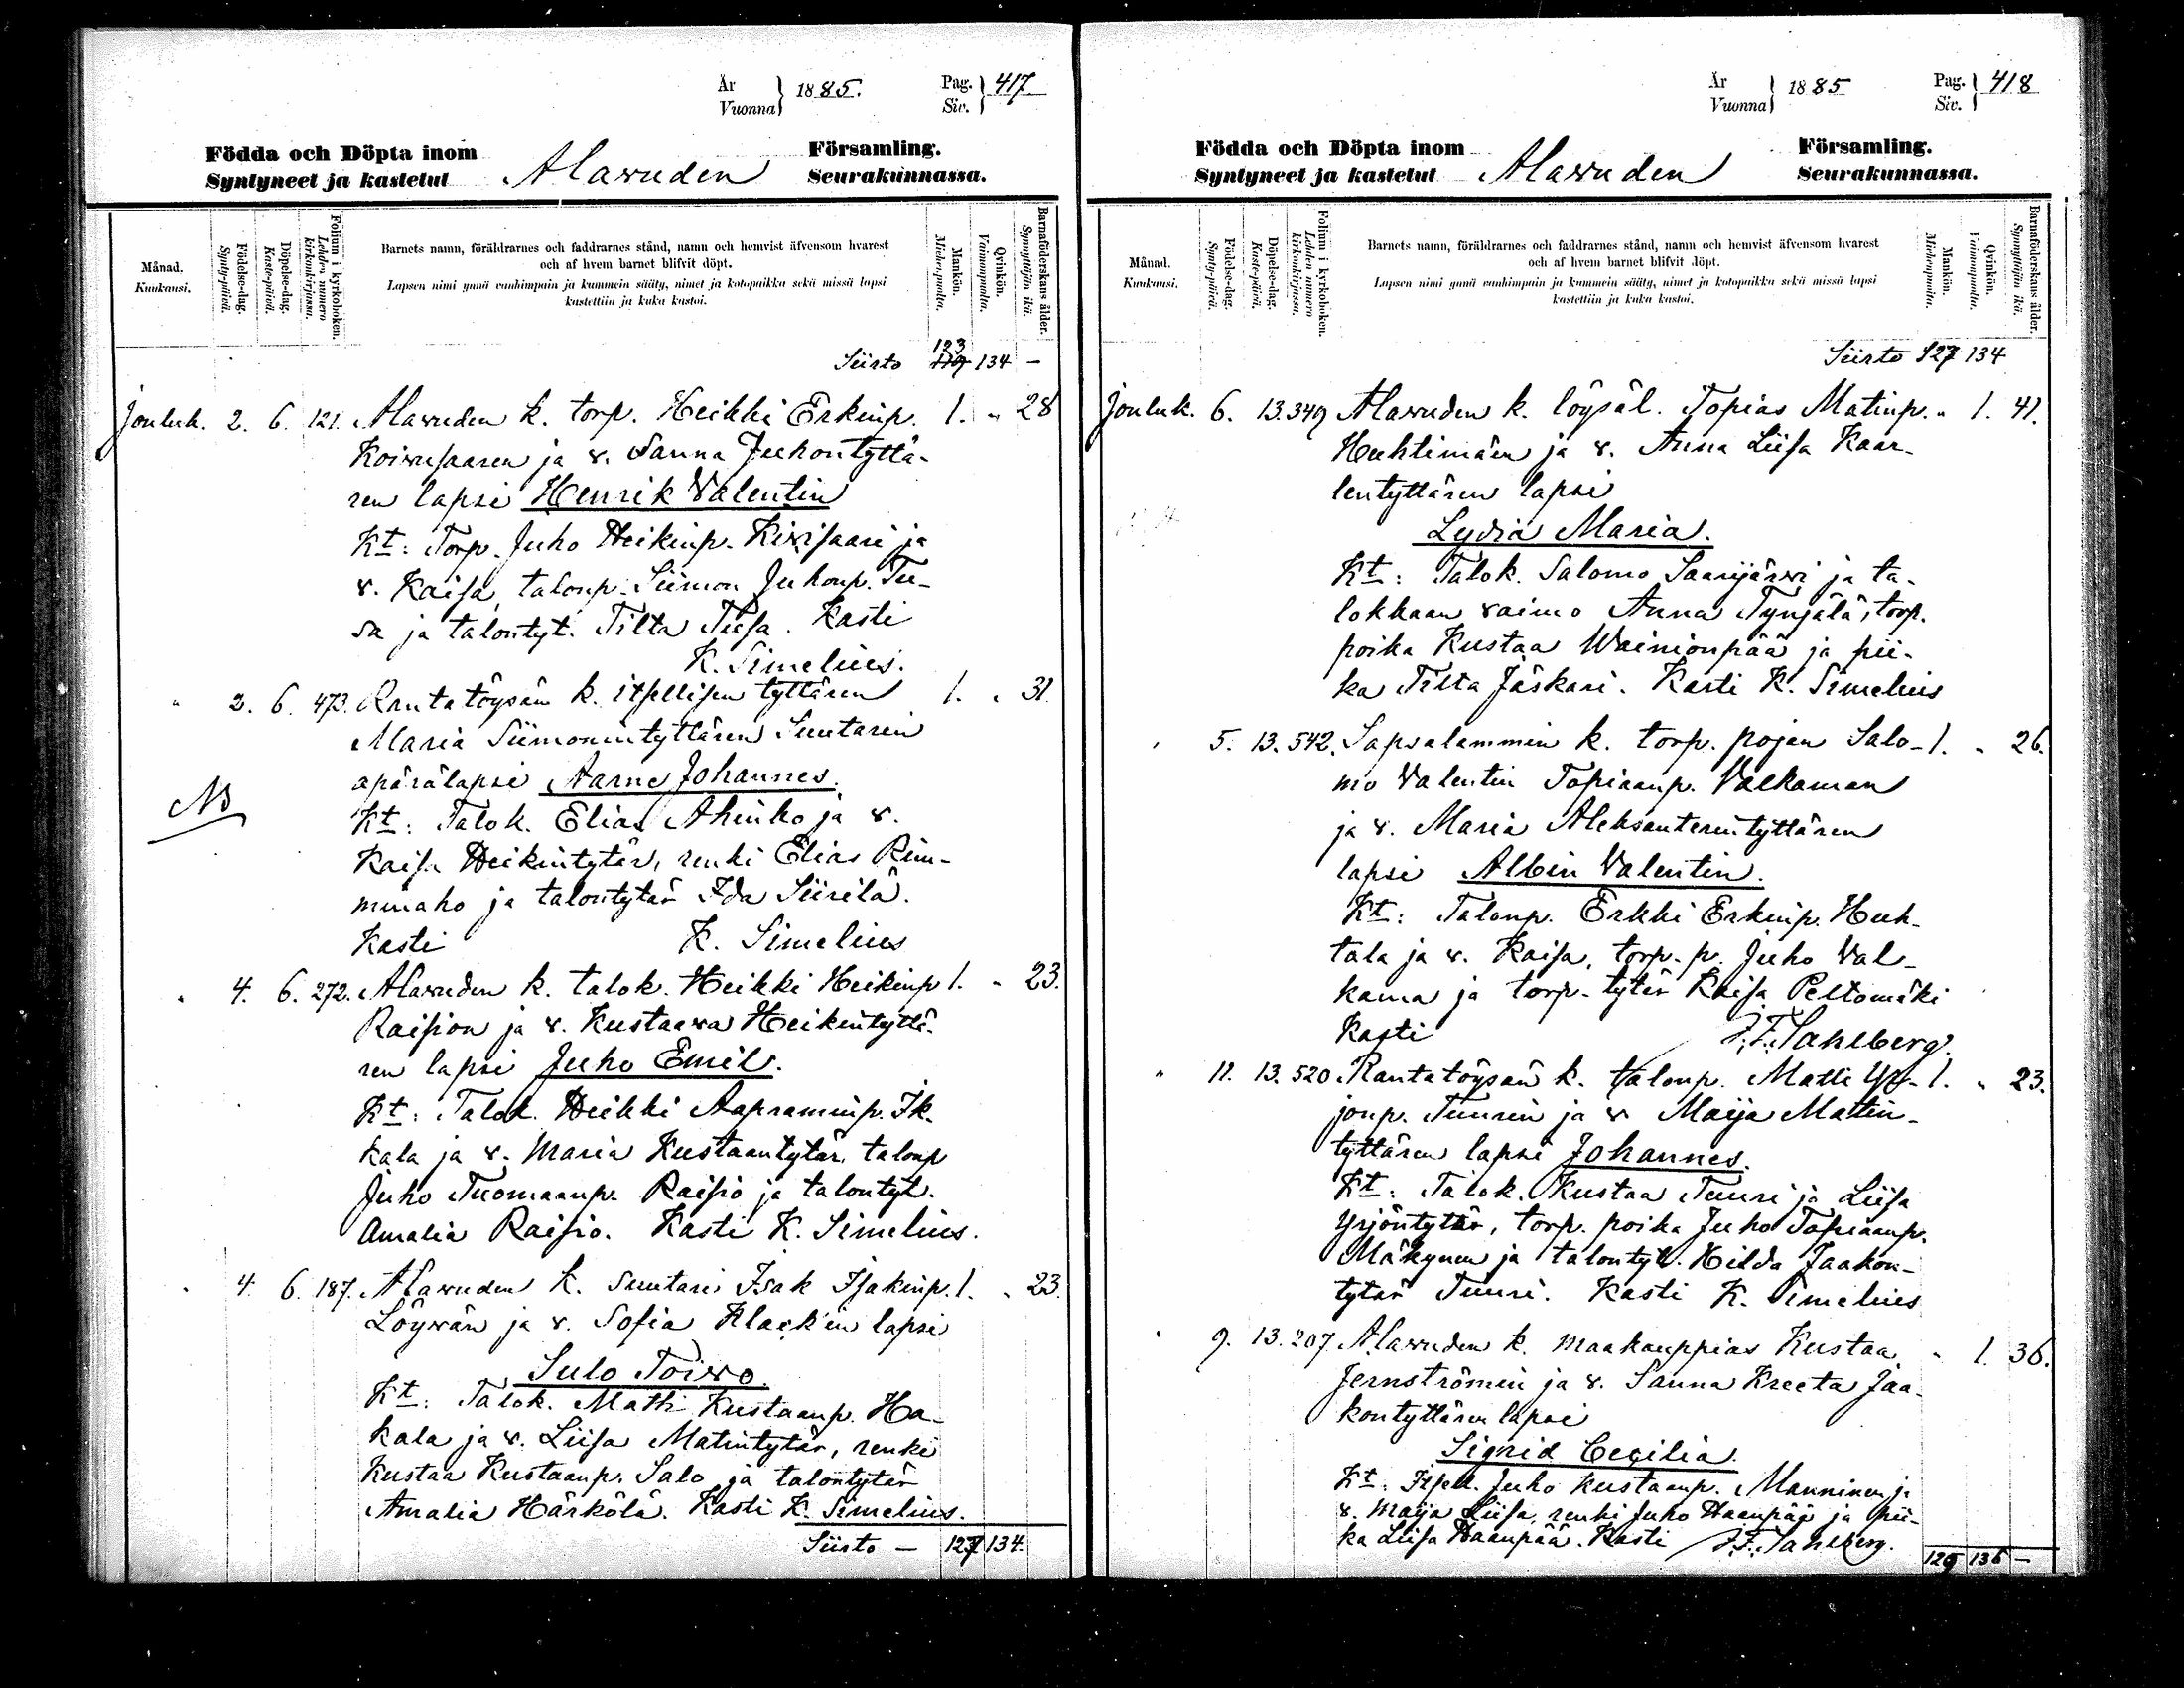 År
Vuonna } 1885.
Pag.
Siv. } 417
Födda och Döpta inom
Syntyneet ja kastetut
Alavuden
Församling.
Seurakunnassa.
Månad.
Kuukausi.
Födelse-dag.
Synty-päivä.
Döpelse-dag.
Kaste-päivä.
Folium i kyrkoboken.
Lehden numero kirkonkirjassa.
Barnets namn, föräldrarnes och faddrarnes stånd, namn och hemvist äfvensom hvarest
och af hvem barnet blifvit döpt.
Lapsen nimi ynnä vanhimpain ja kummein sääty, nimet ja kotopaikka sekä missä lapsi
kastettiin ja kuka kastoi.
Mankön.
Miehenpuolta.
Qvinkön.
Vaimonpuolta.
Barnaföderskans ålder.
Synnyttäjän ikä.
123
Siirto 119 134 —
Jouluk. 2. 6. 121. Alavuden k. torp. Heikki Erkinp. 1. „ 28
Koivusaaren ja v. Sanna Juhontyttä-
ren lapsi Henrik Valentin
Kt: Torp. Juho Heikinp. Kivisaari ja
v. Kaisa, talonp. Siimon Juhonp. Tu-
sa ja talontyt. Tilta Tusa. Kasti
K. Simelius.
„ 2. 6. 473. Rantatöysän k. itsellisen tyttären 1. „ 31.
Maria Siimonintyttären Suutarin
äpärälapsi Aarne Johannes.
NB
Kt: Talok. Elias Ahinko ja v.
Kaisa Heikintytär, renki Elias Rin-
minaho ja talontytär Ida Siirilä.
Kasti K. Simelius
„ 4. 6. 272. Alavuden k. talok. Heikki Heikinp 1. „ 23.
Raision ja v. Kustaava Heikintyttä-
ren lapsi Juho Emil.
Kt: Talok. Heikki Aapraminp. Ik-
kala ja v. Maria Kustaantytär, talonp
Juho Tuomaanp. Raisio ja talontyt.
Amalia Raisio. Kasti K. Simelius.
„ 4. 6. 187. Alavuden k. Suutari Isak Isakinp. 1. „ 23.
Löyvän ja v. Sofia Klack'in lapsi
Sulo Toivo.
Kt: Talok. Matti Kustaanp. Ha-
kala ja v. Liisa Matintytär, renki
Kustaa Kustaanp. Salo ja talontytär
Amalia Härkölä. Kasti K. Simelius.
Siirto — 127 134.
År
Vuonna } 1885
Pag.
Siv. } 418
Födda och Döpta inom
Syntyneet ja kastetut
Alavuden
Församling.
Seurakunnassa.
Månad.
Kuukausi.
Födelse-dag.
Synty-päivä.
Döpelse-dag.
Kaste-päivä.
Folium i kyrkoboken.
Lehden numero kirkonkirjassa.
Barnets namn, föräldrarnes och faddrarnes stånd, namn och hemvist äfvensom hvarest
och af hvem barnet blifvit döpt.
Lapsen nimi ynnä vanhimpain ja kummein sääty, nimet ja kotopaikka sekä missä lapsi
kastettiin ja kuka kastoi.
Mankön.
Miehenpuolta.
Qvinkön.
Vaimonpuolta.
Barnaföderskans ålder.
Synnyttäjän ikä.
Siirto 127 134
Jouluk. 6. 13. 349 Alavuden k. löysäl. Topias Matinp. „ 1. 41.
Huhtimäen ja v. Anna Liisa Kaar-
lentyttären lapsi
Lydia Maria.
Kt: Talok. Salomo Saarijärvi ja ta-
lokkaan vaimo Anna Tynjälä, torp.
poika Kustaa Wainionpää ja pii-
ka Tilta Jäskari. Kasti K. Simelius
„ 5. 13. 542. Sapsalammin k. torp. pojan Salo- 1. „ 26.
mo Valentin Topiaanp. Valkaman
ja v. Maria Aleksanterintyttären
lapsi Albin Valentin.
Kt: Talonp. Erkki Erkinp. Huh-
tala ja v. Kaisa, torp. p. Juho Val-
kama ja torp. tytär Kaisa Peltomäki
Kasti J. F. Sahlberg.
„ 11. 13. 520 Rantatöysän k. talonp. Matti Yr- 1. „ 23.
jonp. Tuurin ja v Maija Matin-
tyttären lapsi Johannes.
Kt: Talok. Kustaa Tuuri ja Liisa
Yrjöntytär, torp. poika Juho Topiaanp.
Mäkynen ja talontyt. Hilda Jaakon-
tytär Tuuri. Kasti K. Simelius
„ 9. 13. 207. Alavuden k. Maakauppias Kustaa „ 1. 36.
Jernströmin ja v. Sanna Kreeta Jaa-
kontyttären lapsi
Sigrid Cecilia.
Kt: Itsell. Juho Kustaanp. Manninen ja
v. Maija Liisa, renki Juho Haanpää ja pii-
ka Liisa Haanpää. Kasti J. F. Sahlberg.
129 136 —